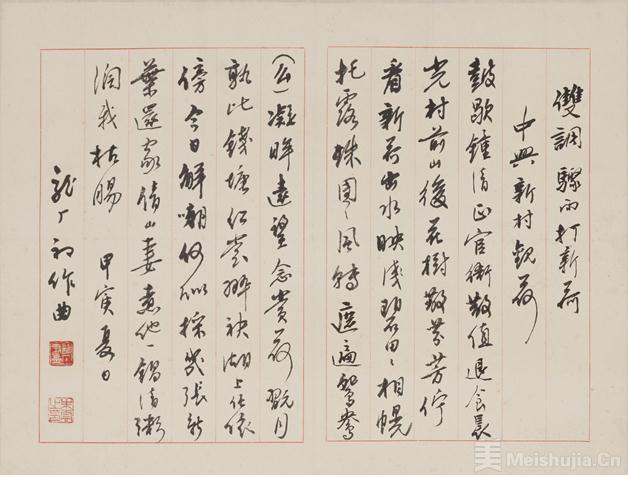 雙調驟雨打新荷
中興新村觀荷
鼓歇鍾清正官衙散值退食晨
光村前山後花樹散芬芳佇
看新荷出水映淺碧田〻相幌
托露珠團〻風轉遮遍鴛鴦
(幺)凝眸遠望念賞荷翫月
孰比錢塘紅裳聯袂湖上任偎
傍今日解嘲何似採幾張新
葉還家倩山妻煮他一鍋清粥
潤我枯腸 甲寅夏日
龍丁初作曲
Meishujia.Cn